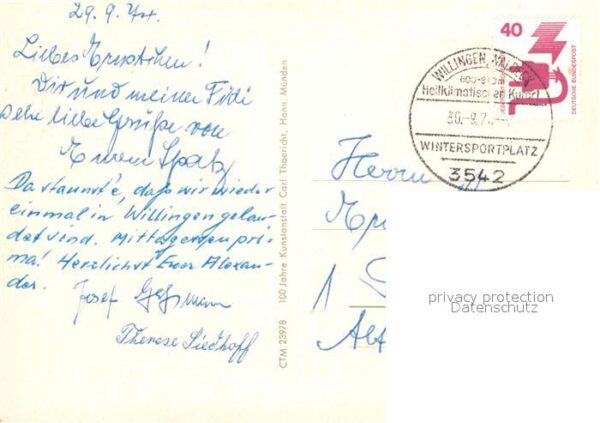 29.9.74.
Liebes Ernstchen!
Dir und meiner Fidi
sehr liebe Grüße von
Eurem Spatz
Da staunst'e, daß wir wieder
einmal in Willingen gelan-
det sind. Mittagessen pri-
ma! Herzlichst Euer Alexan-
der.
Josef
Therese Liedhoff
CTM 23978 100 Jahre Kunstanstalt Carl Thoericht, Hann. Münden
40
DEUTSCHE BUNDESPOST
WILLINGEN, WALDECK
600-843m
Heilklimatischer Kurort
30.-9.7
WINTERSPORTPLATZ
3542
Herrn
1
privacy protection
Datenschutz